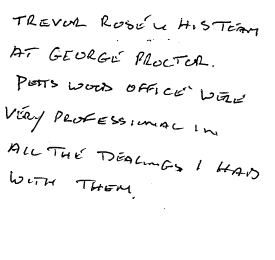 TREVOR ROSE & HIS TEAM
AT GEORGE PROCTOR.
PETTS WOOD OFFICE WERE
VERY PROFESSIONAL IN
ALL THE DEALINGS I HAD
WITH THEM.